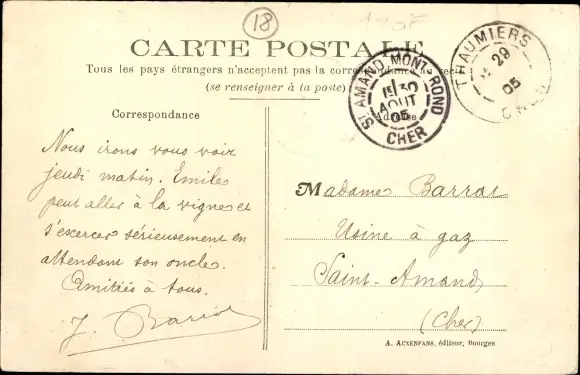 18
CARTE POSTALE
Tous les pays étrangers n'acceptent pas la correspondance au recto
(se renseigner à la poste)
Correspondance
Nous irons vous voir
jeudi matin. Emile
peut aller à la vigne et
s'exercer sérieusement en
attendant son oncle.
Amitiés à tous.
J. Barrat
Adresse
ST AMAND MONT ROND
15 30
AOUT
05
CHER
THAUMIERS
29
05
CHER
Madame Barrat
Usine à gaz
Saint-Amand
(Cher)
A. AUXENFANS, éditeur, Bourges